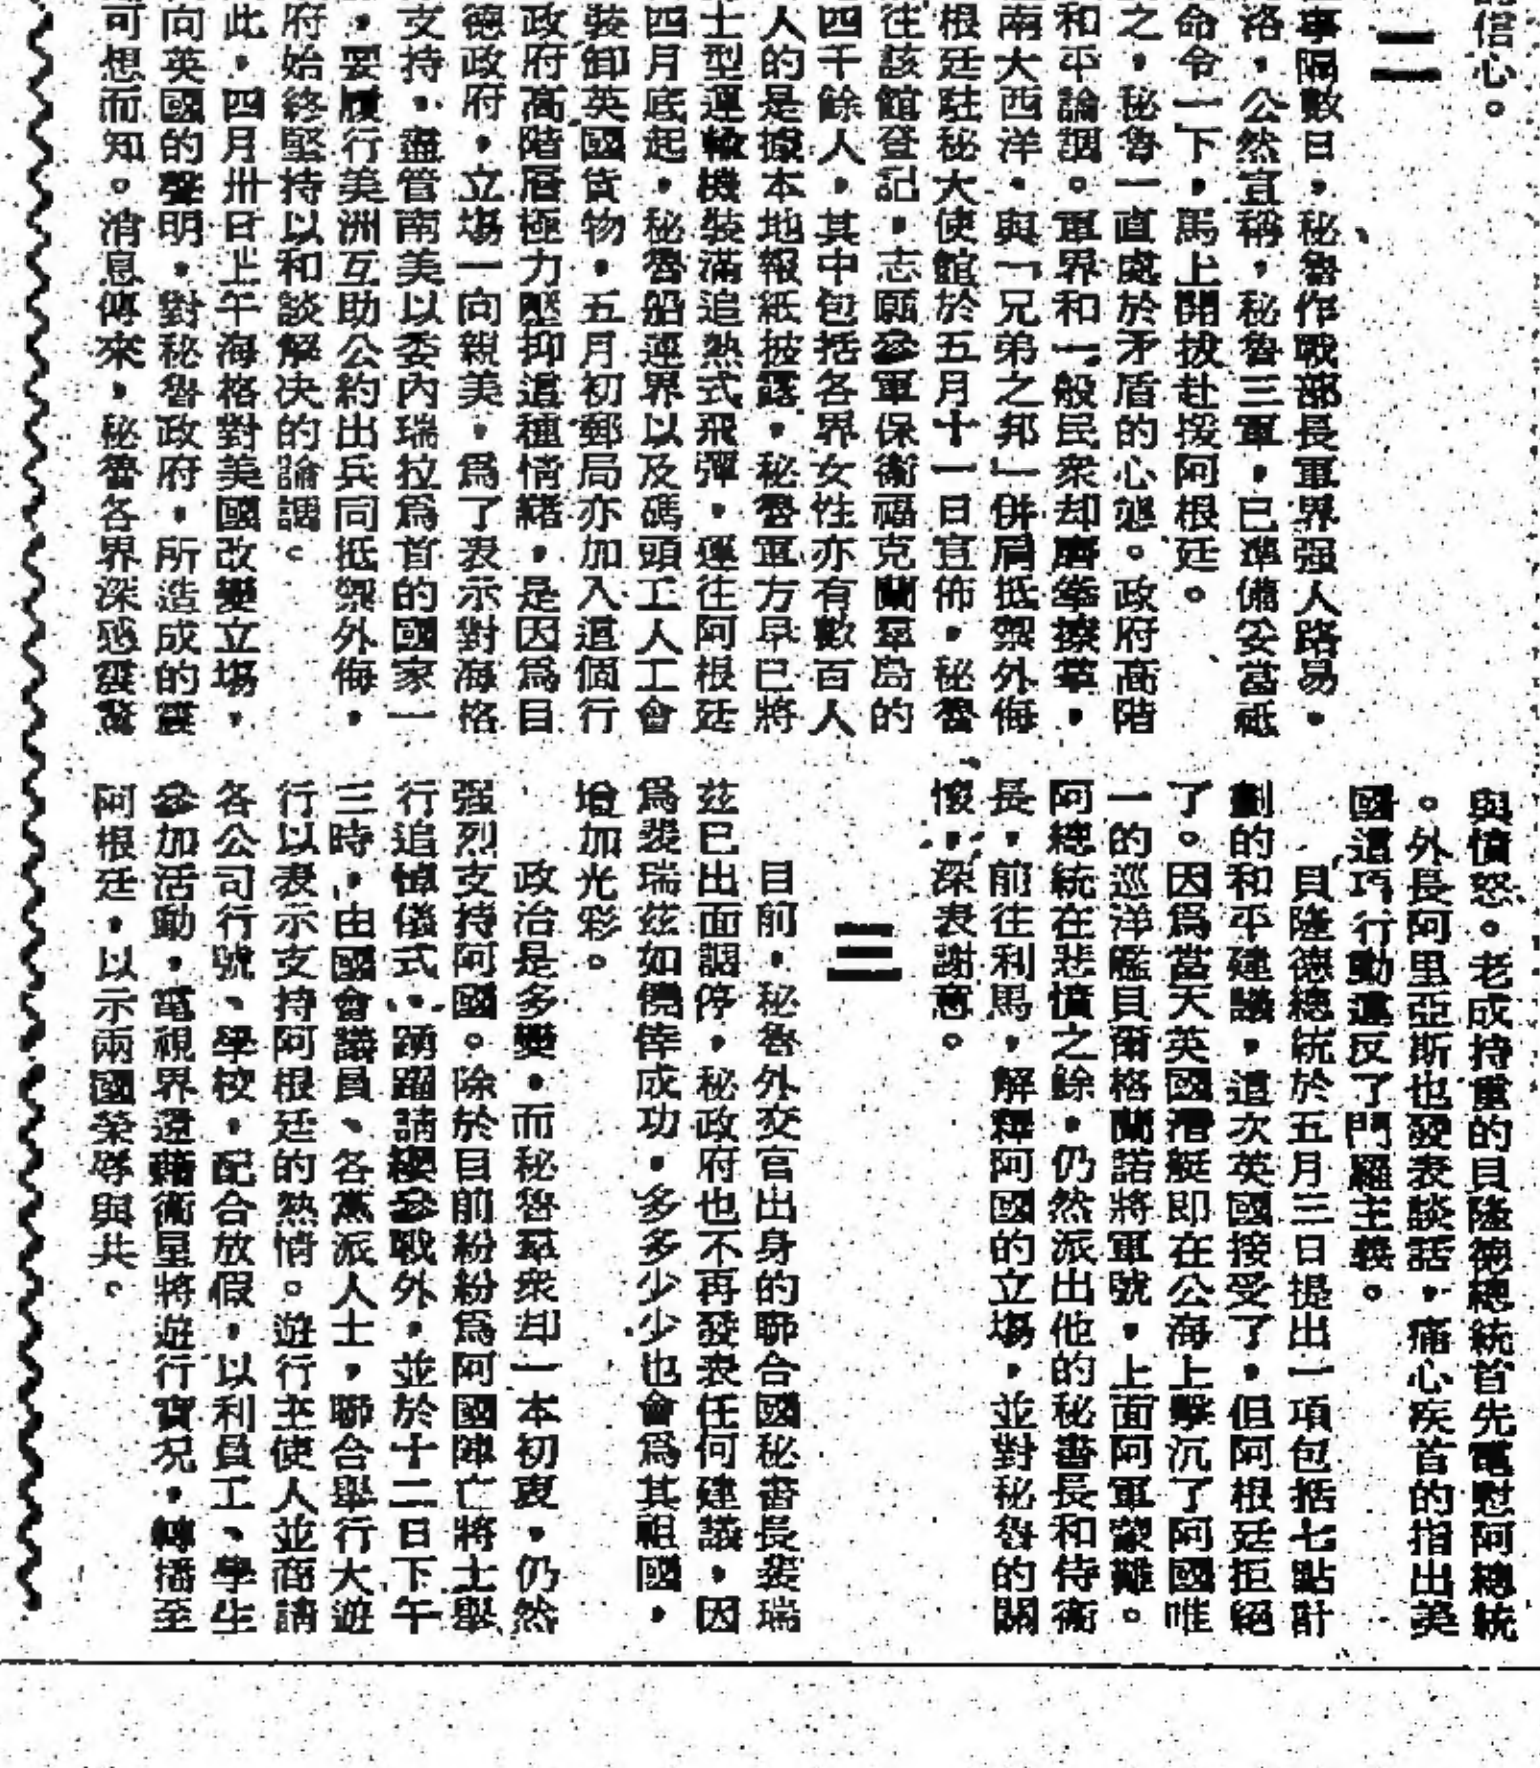 的信心。
二
事隔數日，秘魯作戰部長軍界强人路易．
洛，公然宣稱，秘魯三軍，已準備妥當祗
命令一下，馬上開拔赴援阿根廷。
之，秘魯一直處於矛盾的心態。政府高階
和平論調。軍界和一般民衆却磨拳擦掌，
兩大西洋，與「兄弟之邦」併肩抵禦外侮
根廷駐秘大使館於五月十一日宣佈，秘魯
往該館登記，志願參軍保衛福克蘭羣島的
四千餘人，其中包括各界女性亦有數百人
人的是據本地報紙披露，秘魯軍方早已將
士型運輸機裝滿追熱式飛彈，運往阿根廷
四月底起，秘魯船運界以及碼頭工人工會
裝卸英國貨物，五月初郵局亦加入這個行
政府高階層極力壓抑這種情緒，是因爲目
德政府，立場一向親美，爲了表示對海格
支持，盡管南美以委內瑞拉爲首的國家一
，要履行美洲互助公約出兵同抵禦外侮，
府始終堅持以和談解決的論調。
此，四月卅日上午海格對美國改變立場，
向英國的聲明，對秘魯政府，所造成的震
可想而知。消息傳來，秘魯各界深感震驚
與憤怒。老成持重的貝隆德總統首先電慰阿總統
。外長阿里亞斯也發表談話，痛心疾首的指出美
國這項行動違反了門羅主義。
貝隆德總統於五月三日提出一項包括七點計
劃的和平建議，這次英國接受了，但阿根廷拒絕
了。因爲當天英國潛艇即在公海上擊沉了阿國唯
一的巡洋艦貝爾格蘭諾將軍號，上面阿軍蒙難。
阿總統在悲憤之餘，仍然派出他的秘書長和侍衛
長，前往利馬，解釋阿國的立場，並對秘魯的關
懷，深表謝意。
三
目前，秘魯外交官出身的聯合國秘書長裴瑞
茲已出面調停，秘政府也不再發表任何建議，因
爲裴瑞茲如僥倖成功，多多少少也會爲其祖國，
增加光彩。
政治是多變，而秘魯羣衆却一本初衷，仍然
强烈支持阿國。除於目前紛紛爲阿國陣亡將士舉
行追悼儀式，踴躍請纓參戰外，並於十二日下午
三時，由國會議員、各黨派人士，聯合舉行大遊
行以表示支持阿根廷的熱情。遊行主使人並商請
各公司行號、學校，配合放假，以利員工、學生
參加活動，電視界還藉衛星將遊行實況，轉播至
阿根廷，以示兩國榮辱與共。